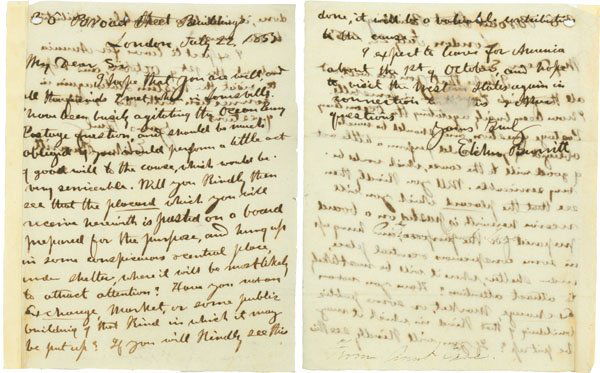 35 Broad Street Buildings
London July 22, 1853
My Dear Sir
I hope that you are well and
all the friends I met with in
have been busily agitating the Ocean Penny
Postage question, and should be much
obliged if you would perform a little act
of good will to the cause, which would be
very serviceable. Will you kindly then
see that the placard which you will
receive herewith is pasted on a board
prepared for the purpose, and hung up
in some conspicuous & central place,
under shelter, where it will be most likely
to attract attention? Have you not an
Exchange, Market, or some public
building of that kind in which it may
be put up? If you will kindly see this
done, it will be a valuable contribution
to the cause.
I expect to leave for America
about the 1st of October, and hope
to visit the West States again in
connection this & other
questions
Yours Truly
Elihu Burritt